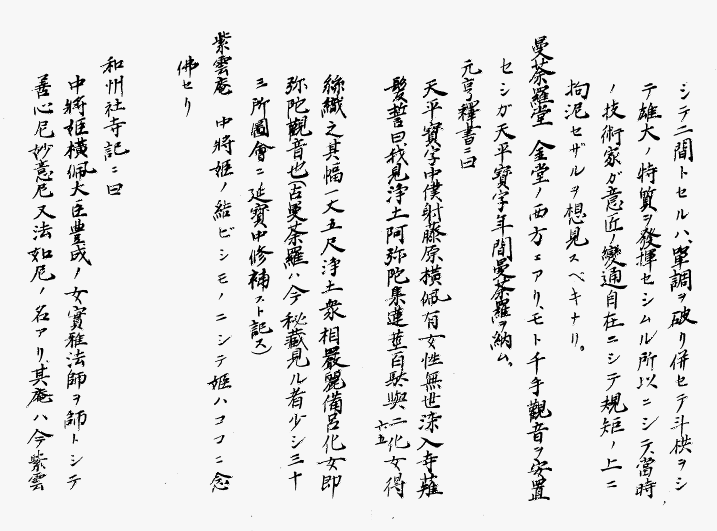 シテ二間トセルハ、單調ヲ破リ併セテ斗栱ヲシ
テ雄大ノ特質ヲ發揮セシムル所以ニシテ、當時
ノ技術家ガ意匠ノ變通自在ニシテ規矩ノ上ニ
拘泥セザルヲ想見スベキナリ。
曼荼羅堂 金堂ノ西方ニアリ、モト千手觀音ヲ安置
セシガ天平寶字年間曼荼羅ヲ納ム。
元亨釋書ニ曰
天平寶字中僕射藤原横佩有女性無世染入寺薙
髮誓曰我見浄土阿弥陀集蓮茎百駄與二化女得
六五
絲織之其幅一丈五尺浄土衆相嚴麗備呂化女即
弥陀觀音也古曼荼羅ハ今秘藏見ル者少シ三十
三所圖會ニ延寶中修補スト記ス)
紫雲庵 中將姫ノ結ビシモノニシテ姫ハココニ念
佛セリ
和州社寺記ニ曰
中將姫横佩大臣豊成ノ女實雅法師ヲ師トシテ
善心尼妙意尼又法如尼ノ名アリ、其庵ハ今紫雲